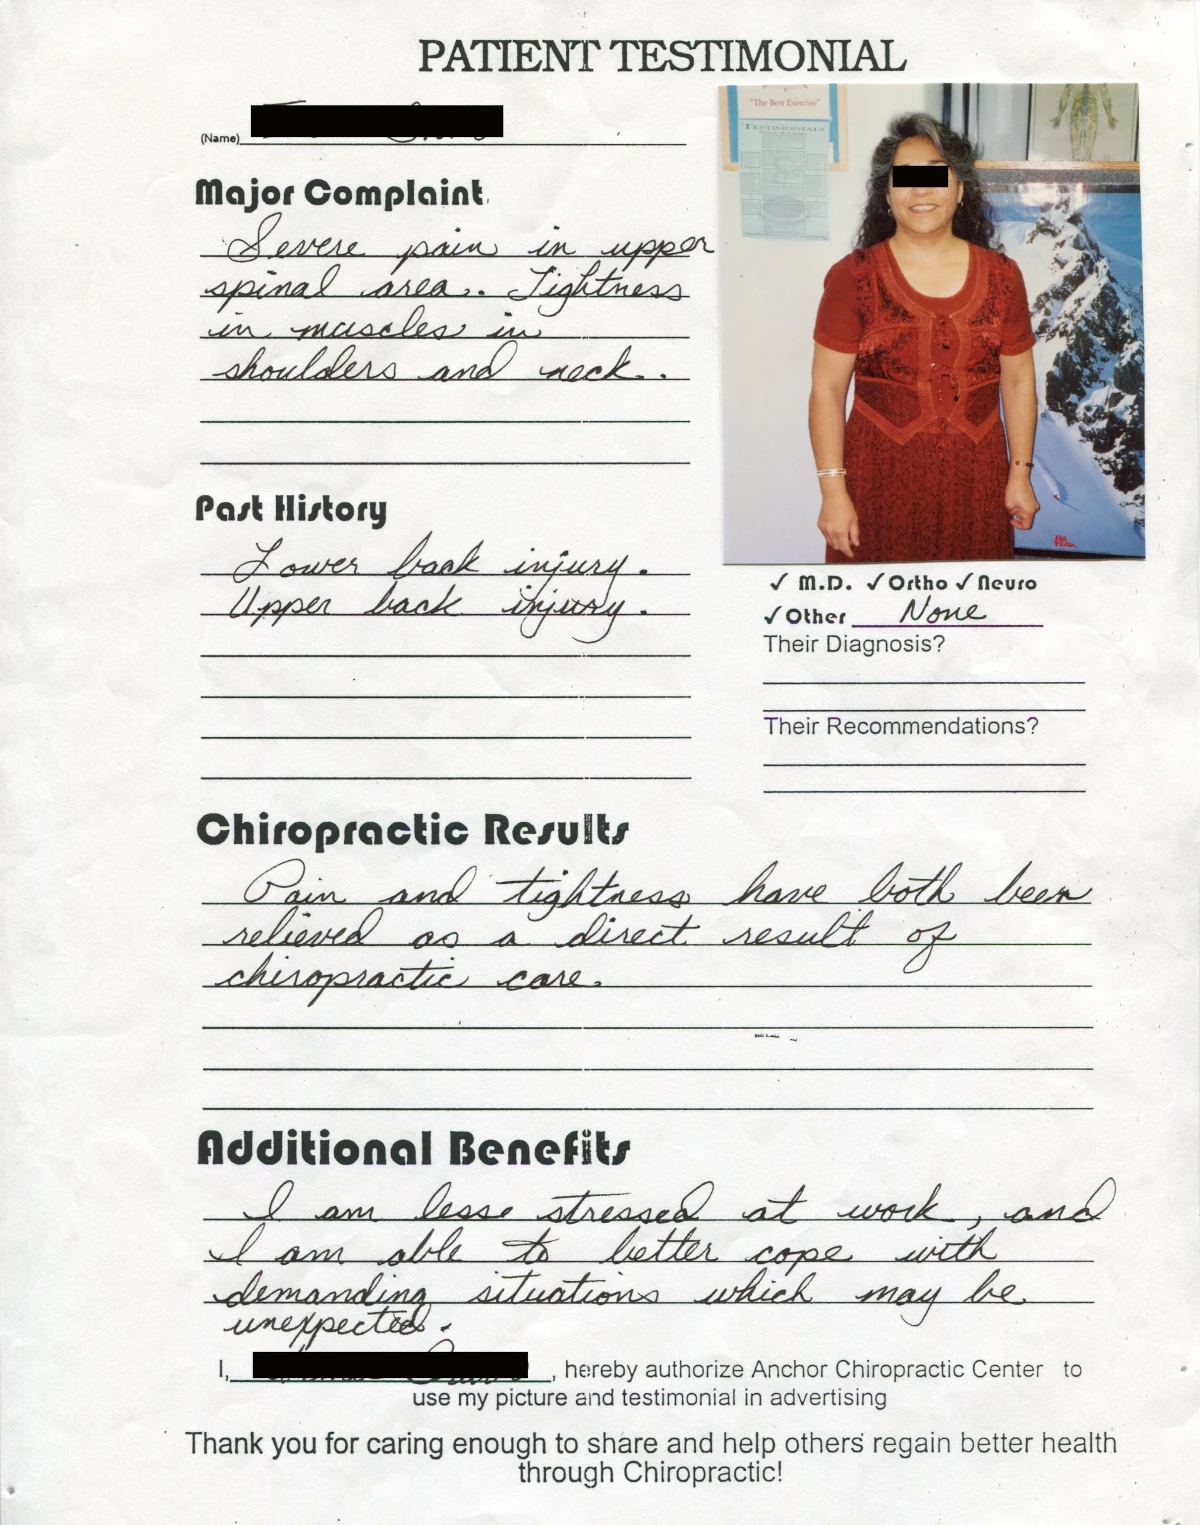 PATIENT TESTIMONIAL
(Name)
"The Best Exercise"
TESTIMONIALS
Major Complaint
Severe pain in upper
spinal area. Tightness
in muscles in
shoulders and neck.
Past History
Lower back injury.
Upper back injury.
✓ M.D. ✓ Ortho ✓ Neuro
✓ Other None
Their Diagnosis?
Their Recommendations?
Chiropractic Results
Pain and tightness have both been
relieved as a direct result of
chiropractic care.
Additional Benefits
I am less stressed at work, and
I am able to better cope with
demanding situations which may be
unexpected.
I, , hereby authorize Anchor Chiropractic Center to
use my picture and testimonial in advertising
Thank you for caring enough to share and help others regain better health
through Chiropractic!